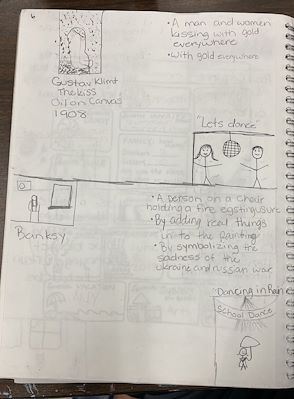 6
• A man and women
kissing with gold
everywhere
• with gold everywhere
Gustav Klimt
The kiss
Oil on Canvas
1908
"Lets dance"
• A person on a chair
holding a fire
• By adding real things
in to the Painting
• By symbolizing the
sadness of the
ukraine and russian war
Banksy
"Dancing in Rain
School Dance